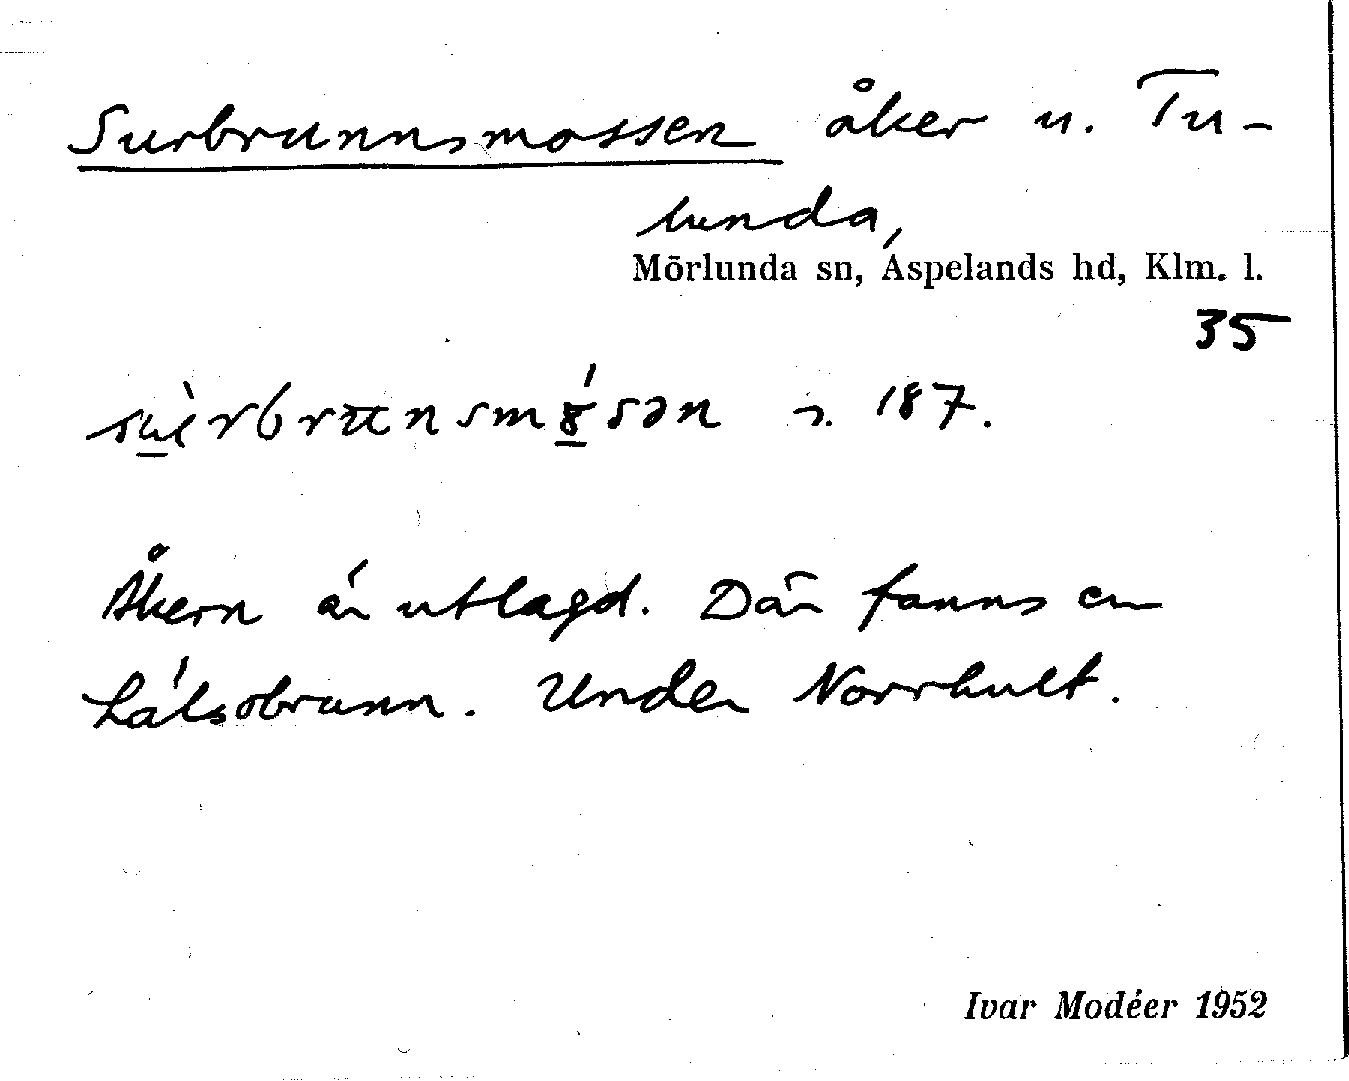 Surbrunnsmossen åker u. Tu-
lunda,
Mörlunda sn, Aspelands hd, Klm. l.
35
sùrbrunsmósən s. 187.
Åkern är utlagd. Där fanns en
hälsobrunn. Under Norrhult.
Ivar Modéer 1952